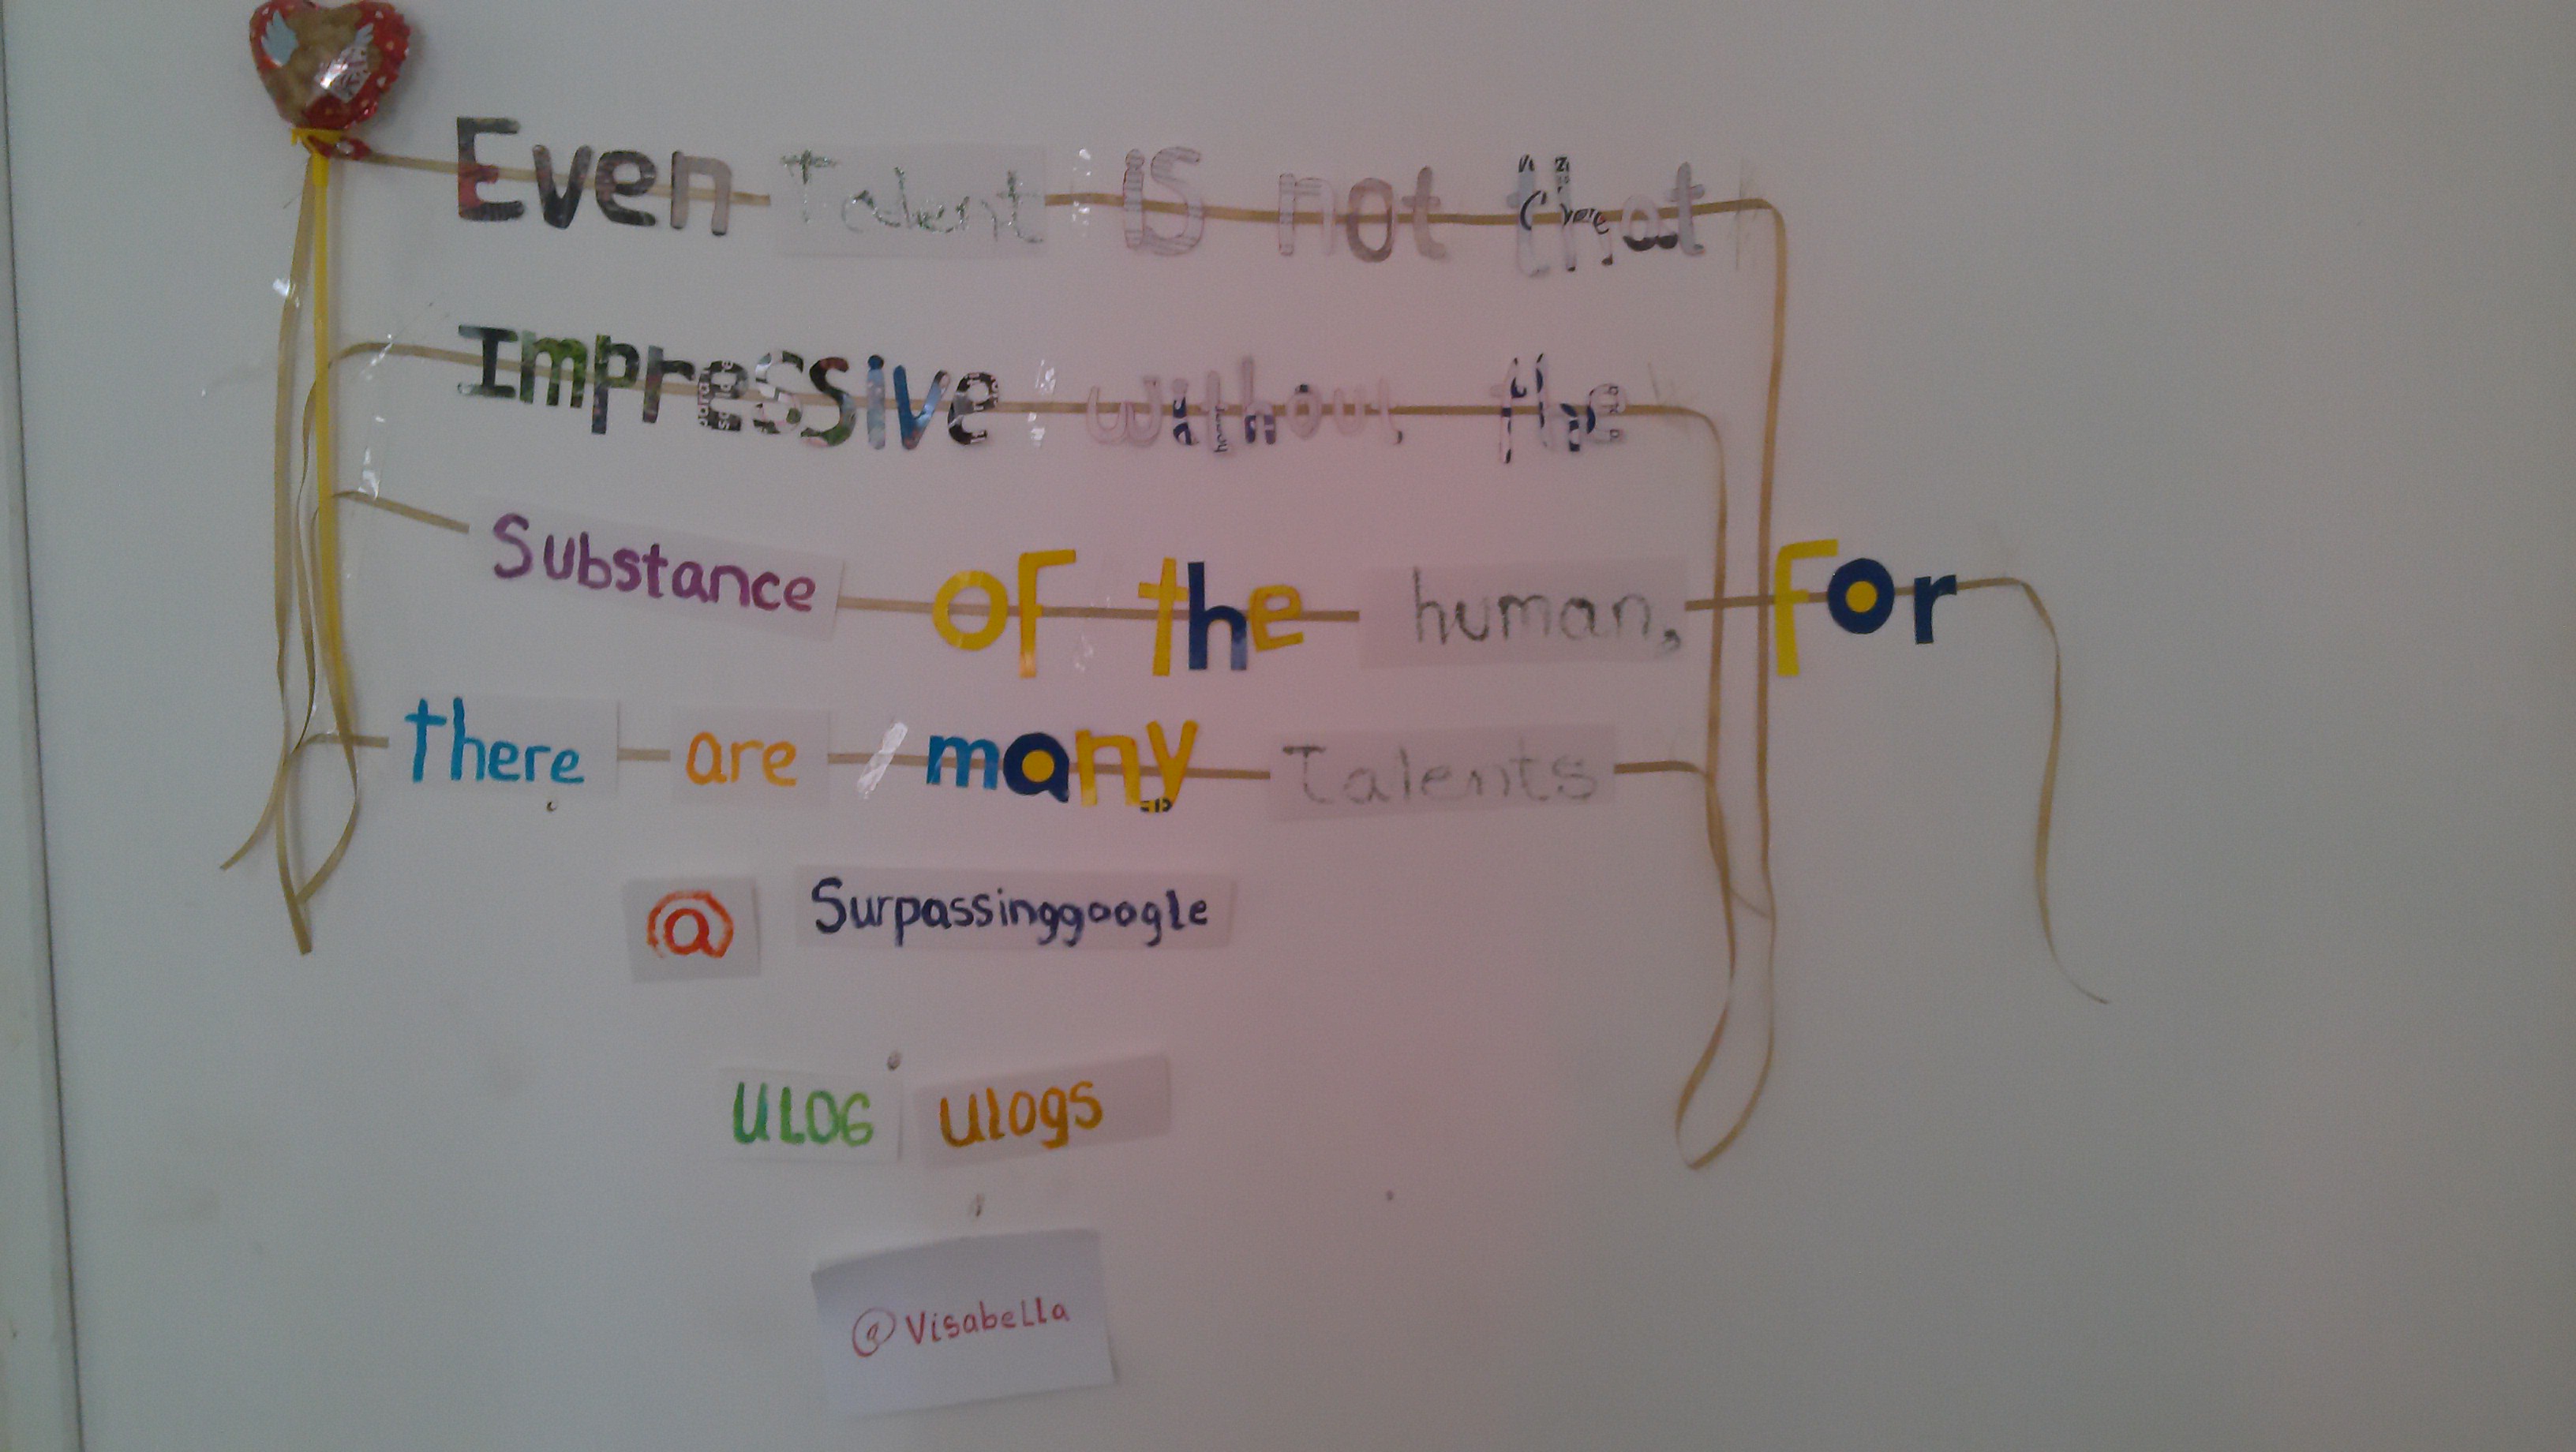 Even Talent is not that
Impressive without the
Substance of the human, for
there are many Talents
@ Surpassinggoogle
ULOG ulogs
@Visabella